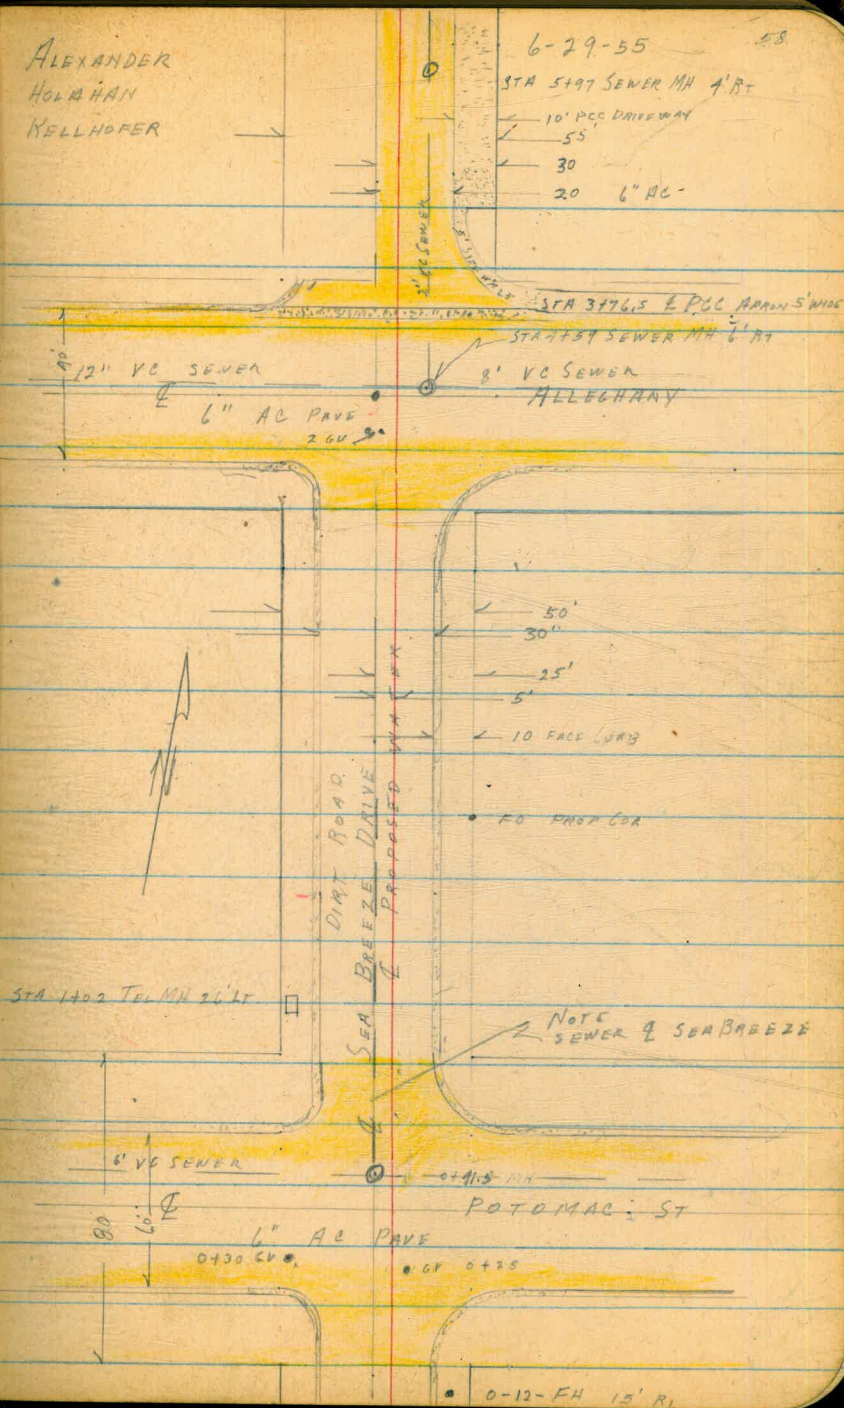 6-29-55
58
ALEXANDER
HOLAHAN
KELLHOFER
STA 5+97 SEWER MH 4' RT
10' PCC DRIVEWAY
55'
30
20 6" AC -
VC SEWER
STA 3+76.5 ℄ PCC APRON 5' WIDE
SEWER MH 6' RT
40'
12" VC SEWER
8' VC SEWER
℄
ALLEGHANY
6" AC PAVE
2 GV
50'
30"
25'
5'
10 FACE CURB
N
FD PROP COR
DIRT ROAD
SEA BREEZE DRIVE ℄
℄ PROPOSED WATER
STA 1+02 TEL MH 26' LT
NOTE
SEWER ℄ SEA BREEZE
6' VC SEWER
0+41.5 MH
℄
POTOMAC ST
80
60'
6" AC PAVE
0+30 GV
GV 0+25
0-12- FH 15' RT